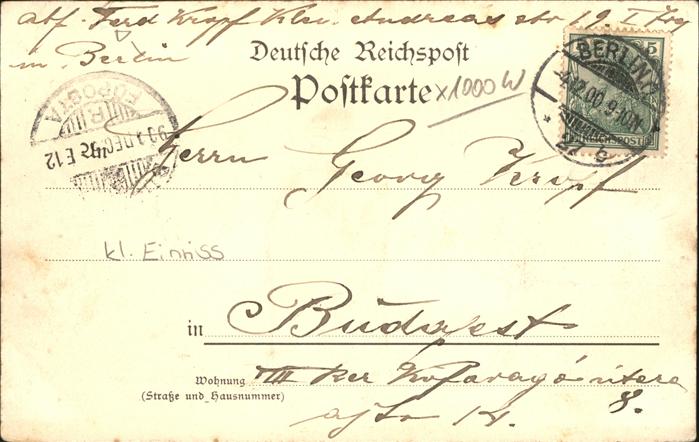 abs. Ferd Kropf Klein Andreas str 19. I Trg
in Berlin
Deutsche Reichspost
Postkarte
x1000 W
5
REICHSPOST
BERLIN
4.12.00.9-10
27
FŐPOSTA
900 DEC
E 12
Herrn Georg Kropf
kl. Einriss
in Budapest
Wohnung
(Straße und Hausnummer)
VIII ker Kőfaragó utcza
ajto 14. 8.